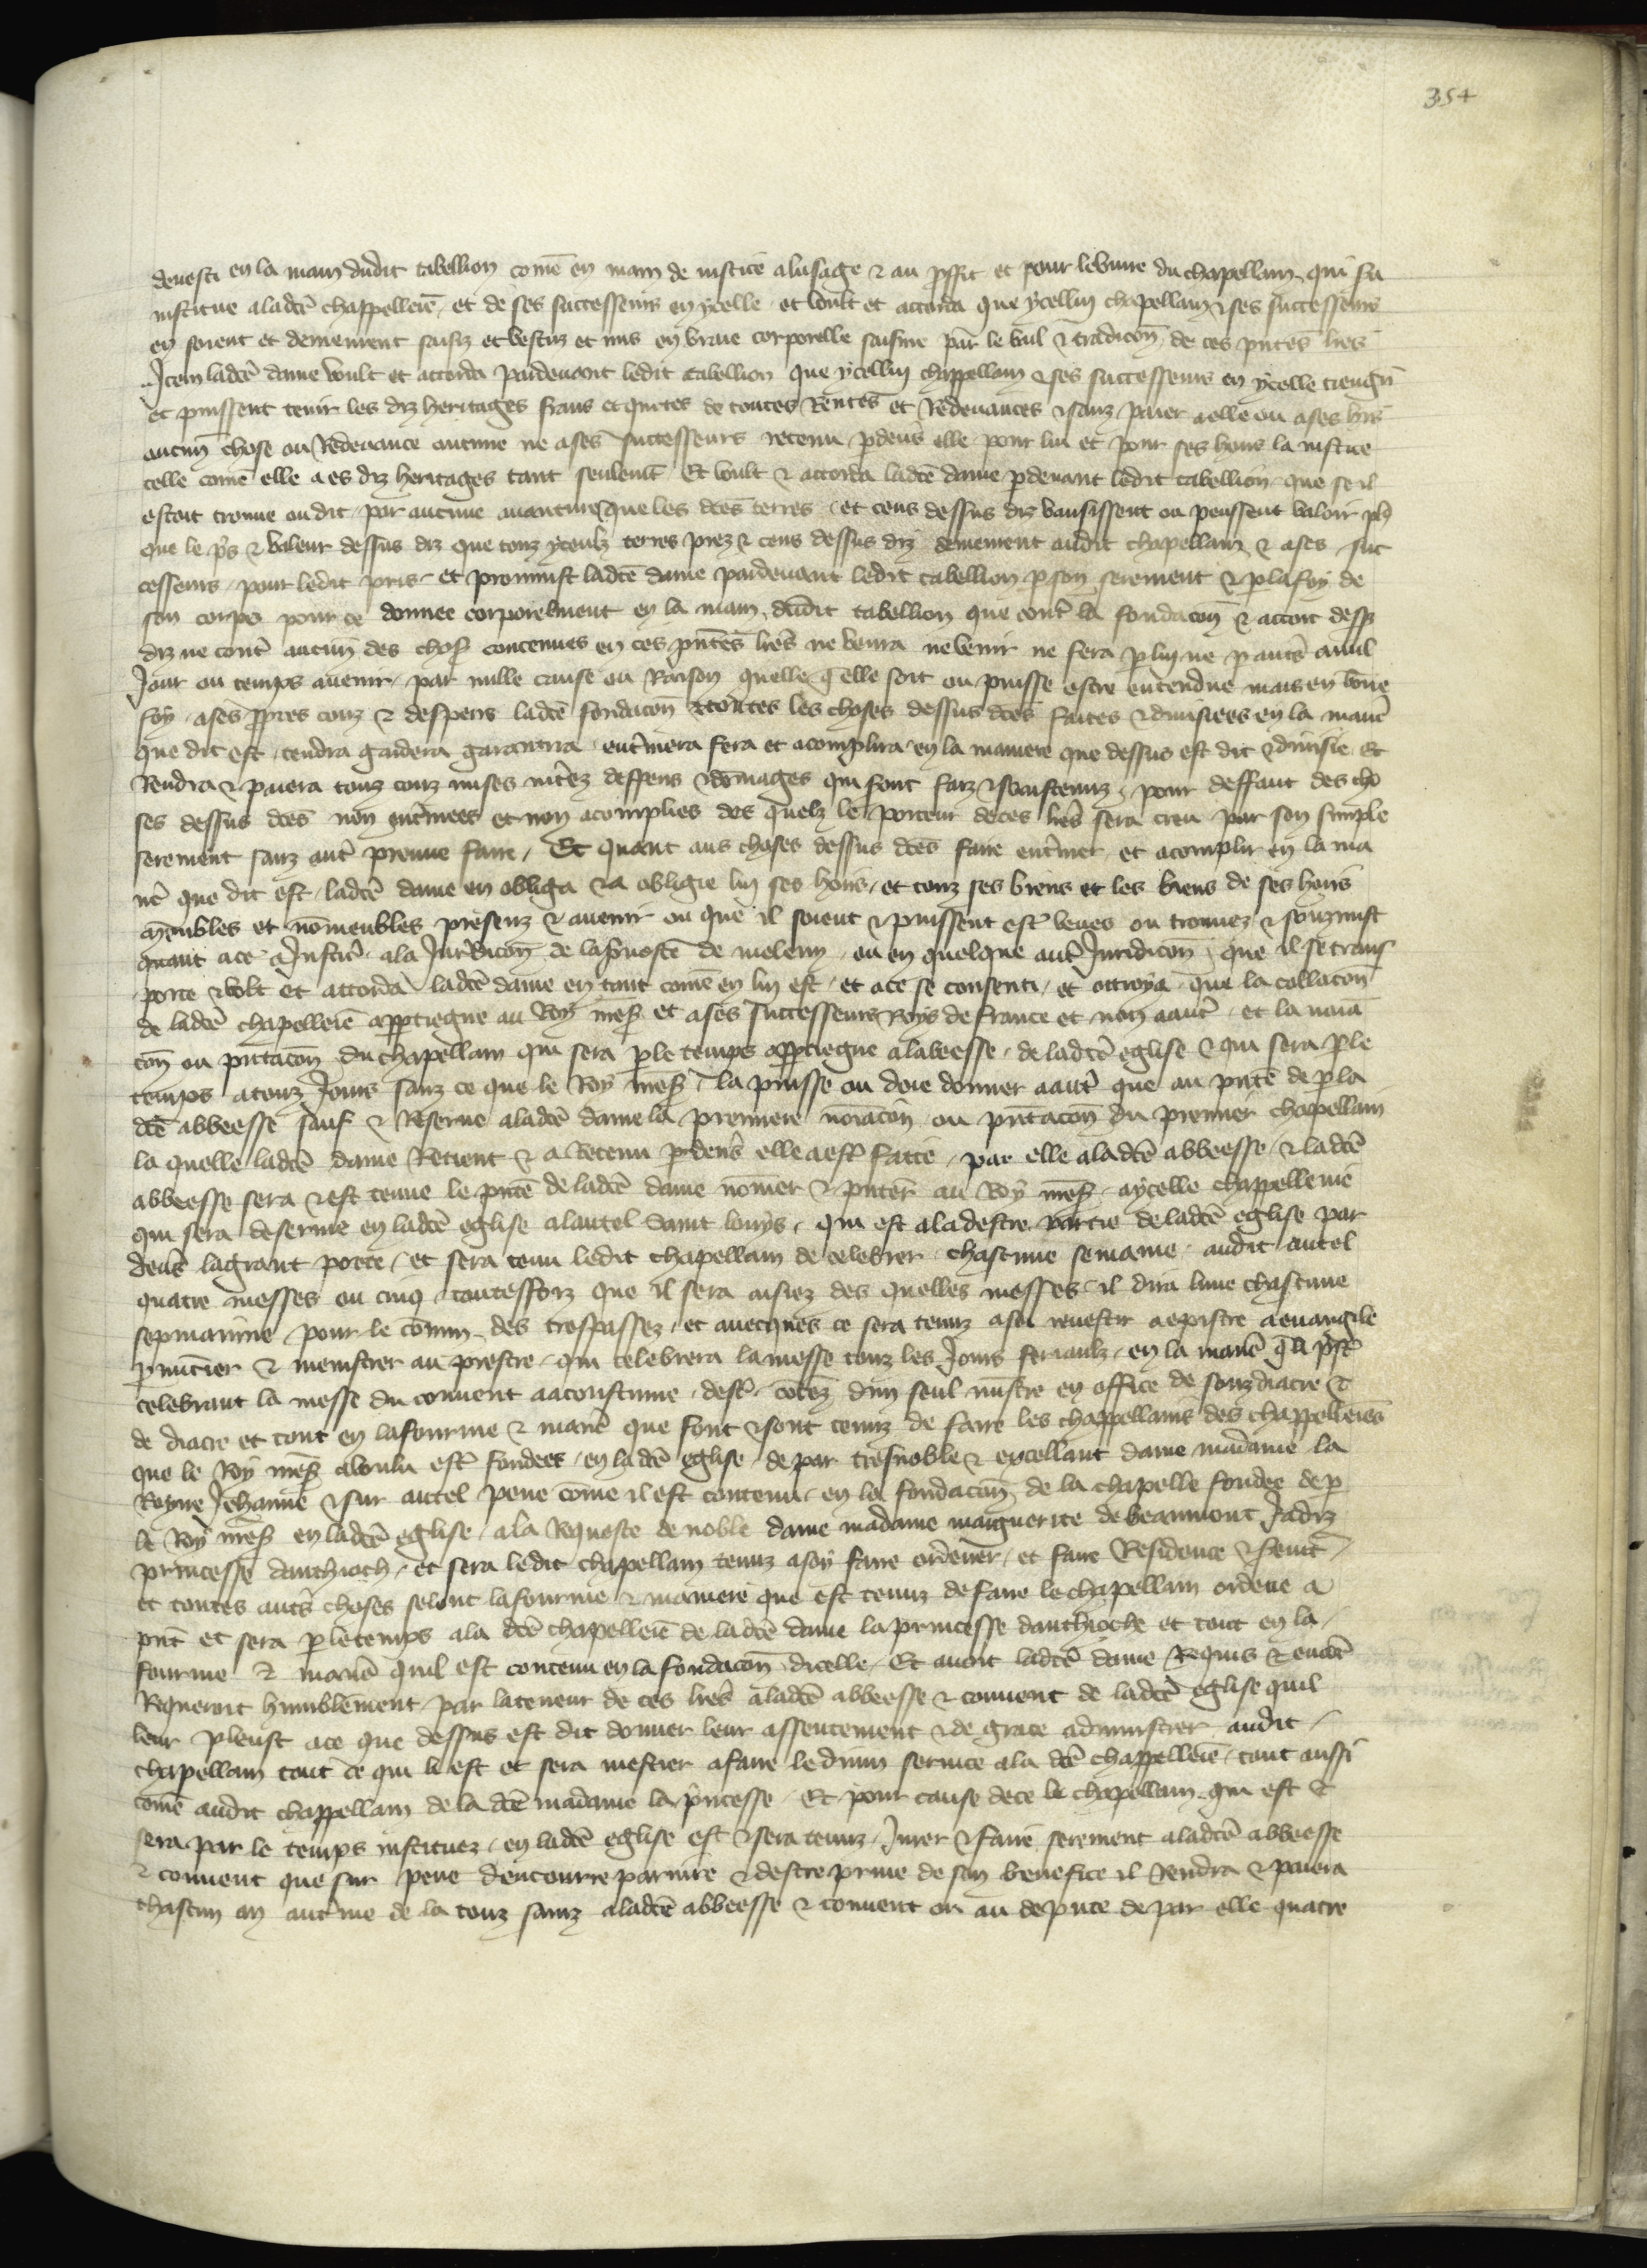 354
devesti en la main dudit tabellion come en main de iustice a lusage & au pffit et pour levure du chapellain qui fu
institue a ladce chappellerie, et de ses successeurs en ycelle, et voult et accorda que ycellui chapellain & ses successeurs
en soient et demeurent saisiz et vestuz et mis en vraie corporelle saisine par le bail & tradicon de ces pntes lres
Item ladce dame voult et accorda pardevant ledit tabellion que ycellui chappellain & ses successeurs en ycelle tiengnt
et puissent tenir les diz heritages frans et quittes de toutes Rentes et Redevances & sanz paier a elle ou a ses hrs
aucun chose ou Redevance aucune ne a ses successeurs retenu pdevs elle pour lui et pour ses hoirs la iustice
telle come elle a es diz heritages tant seulemt Et voult & accorda ladce dame pdevant ledit tabellion que se il
estoit trouve ou dit par aucune avanture que les dces terres et cens dessus diz vausissent ou peussent valoir pl9
que le pris & valeur dessus diz que touz yceulz terres prez & cens dessus diz demeurent audit chapellain & a ses suc
cesseurs pour ledit pris et promist ladce dame pardevant ledit tabellion p son serement & p la foy de
son corps pour ce donnee corporelment en la main dudit tabellion que contr la fondacon & accort dess9
diz ne contr aucun des chos contenues en ces pntes lres ne venra ne venir ne fera p lui ne p autr a nul
Jour ou temps avenir par nulle cause ou Raison quelle q elle soit ou puisse estre entendue mais en bone
foy a ses ppres couz & despens ladce fondacon & toutes les choses dessus dces faites & divisees en la manr
que dit est tendra gardera garantira entrinera fera et acomplira en la maniere que dessus est dit & divisie Et
Rendra & paiera touz couz mises intrez despens & domages qui sont faiz & soustenuz pour deffaut des cho
ses dessus dces non entrinees et non acomplies des quelz le porteur de ces lres sera creu par son simple
serement sanz autr preuve faire, Et quant aus choses dessus dces faire entriner et acomplir en la ma
nr que dit est ladce dame en obliga & a obligie lui ses hoirs et touz ses biens et les biens de ses hoirs
meubles et nomeubles presenz & avenir ou que il soient & puissent estr veues ou trouvez & souzmist
quant a ce a Justicr a la Juridicon de la prevoste de meleun ou en quelque autr Juridicon que il se trans
porte & volt et accorda ladce dame en tant come en lui est et a ce se consenti et ottroya que la collacon
de ladce chapellerie apptiegne au Roy mess et a ses successeurs Roys de france et non a autr et la noia
con ou pntacon du chapellain qui sera p le temps apptiegne a labeesse de ladce eglise & qui sera p le
temps a touz Jours sanz ce que le Roy mess la puisse ou doie donner a autr que au pnte de p la
dce abbeesse sauf & Reserve a ladce dame la premiere noiacon ou pntacon du premier chapellain
la quelle ladce dame Retient & a Retenu pdevs elle a estr faitte par elle a ladce abbeesse & ladce
abbeesse sera & est tenue le pnte de ladce dame nomer & pnter au Roy mess a ycelle chappellenie
qui sera deservie en ladce eglise a lautel saint louys qui est a la destre partie de ladce eglise par
devs la grant porte et sera tenu ledit chapellain de celebrer chascune semaine audit autel
quatre messes ou cinq toutesfoiz que il sera aisiez des quelles messes il dira lune chascune
sepmainne pour le comun des trespassez et avecques ce sera tenuz a soi revestir a epistre a euvangile
pnuncier & menistrer au prestre qui celebrera la messe touz les Jours feriaulz en la manr q li pstr
celebrant la messe du couvent a acoustume destr cotez dun seul ministre en office de souzdiacre &
de diacre et tout en la fourme & manr que font & sont tenuz de faire les chappellains des chappelleries
que le Roy mess a voulu estr fondees en ladce eglise de par tresnoble & excellant dame madame la
Royne Jehanne & sur autel pene come il est contenu en la fondacon de la chapelle fondee de p
le Roy mess en ladce eglise a la Requeste de noble dame madame marguerite de beaumont Jadiz
princesse danthioch et sera ledit chapellain tenuz a soy faire ordener et faire Residence & servic
et toutes autrs choses selont la fourme & maniere que est tenuz de faire le chapellain ordene a
pnt et sera p le temps a la dce chapellerie de ladce dame la princesse danthioche et tout en la
fourme & manr quil est contenu en la fondacon dicelle Et avoit ladce dame Requis & encor
Requeroit humblement par la teneur de ces lres a ladce abbeesse & couvent de ladce eglise quil
leur pleust a ce que dessus est dit donner leur assentement & de grace administrer audit
chapellain tout ce qui li est et sera mestier a faire le divin service a la dce chappellerie tout aussi
come audit chappellain de la dce madame la pncesse Et pour cause de ce le chapellain qui est &
sera par le temps instituez en ladce eglise est & sera tenuz Jurer & faire serement a ladce abbeesse
& couvent que sur pene dencourre pariure & destre prive de son benefice il Rendra & paiera
chascun an au tme de la touz sainz a ladce abbeesse & couvent ou au depute de par elle quatre